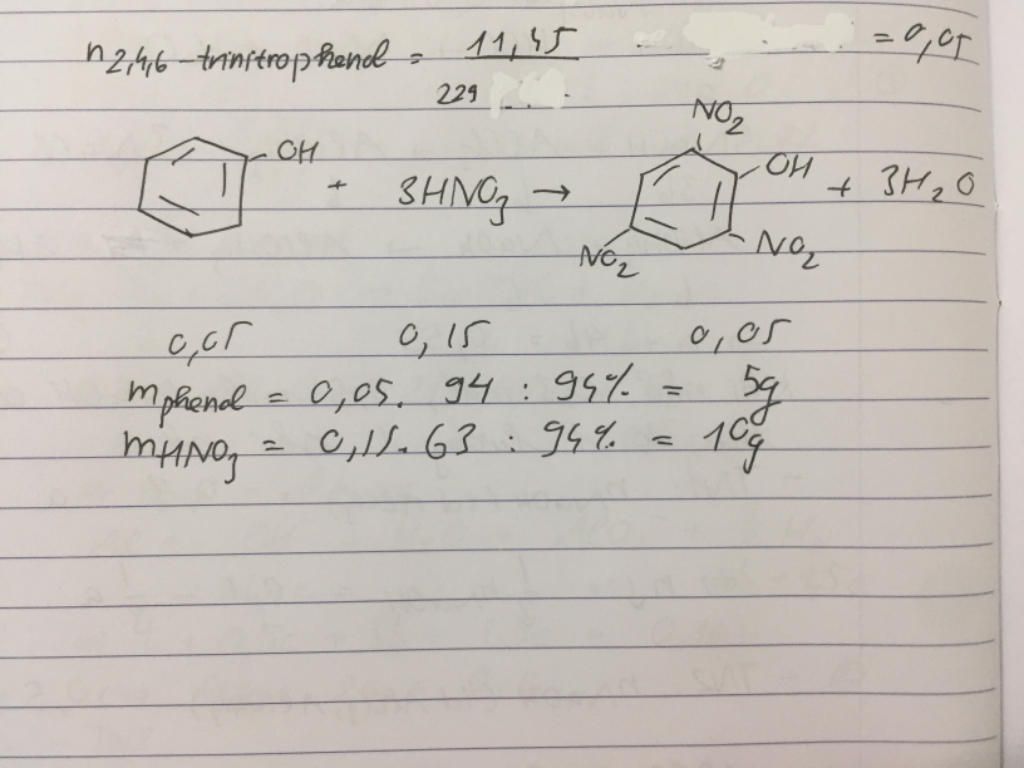 n 2,4,6-trinitrophenol = 11,45 / 229 = 0,05
NO2
OH + 3HNO3 → OH + 3H2O
NO2 NO2
0,05 0,15 0,05
mphenol = 0,05. 94 : 94% = 5g
mHNO3 = 0,15. 63 : 94% = 10g